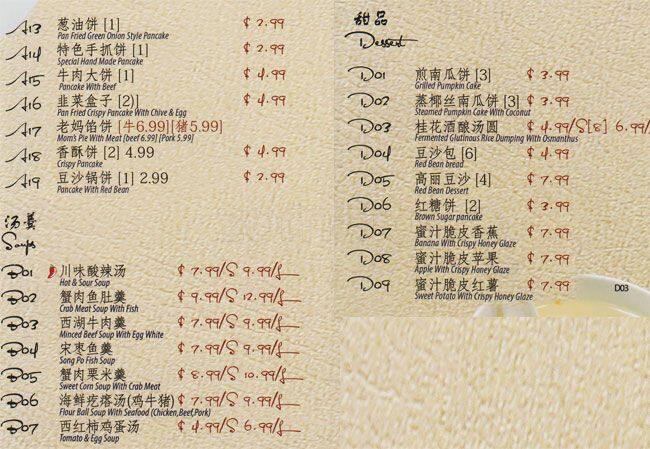 A13 葱油饼 [1] ¢ 2.99
Pan Fried Green Onion Style Pancake
A14 特色手抓饼 [1] ¢ 2.99
Special Hand Made Pancake
A15 牛肉大饼 [1] ¢ 4.99
Pancake With Beef
A16 韭菜盒子 [2] ¢ 4.99
Pan Fried Crispy Pancake With Chive & Egg
A17 老妈馅饼 [牛6.99][猪5.99]
Mom's Pie With Meat [beef 6.99] [Pork 5.99]
A18 香酥饼 [2] 4.99 ¢ 4.99
Crispy Pancake
A19 豆沙锅饼 [1] 2.99 ¢ 2.99
Pancake With Red Bean
汤羹
Soups
B01 川味酸辣汤 ¢ 7.99/S 9.99/L
Hot & Sour Soup
B02 蟹肉鱼肚羹 ¢ 9.99/S 12.99/L
Crab Meat Soup With Fish
B03 西湖牛肉羹 ¢ 7.99/S 9.99/L
Minced Beef Soup With Egg White
B04 宋枣鱼羹 ¢ 7.99/S 9.99/L
Song Po Fish Soup
B05 蟹肉栗米羹 ¢ 8.99/S 10.99/L
Sweet Corn Soup With Crab Meat
B06 海鲜疙瘩汤(鸡牛猪) ¢ 7.99/S 9.99/L
Flour Ball Soup With Seafood (Chicken,Beef,Pork)
B07 西红柿鸡蛋汤 ¢ 4.99/S 6.99/L
Tomato & Egg Soup
甜品
Dessert
D01 煎南瓜饼 [3] ¢ 3.99
Grilled Pumpkin Cake
D02 蒸椰丝南瓜饼 [3] ¢ 3.99
Steamed Pumpkin Cake With Coconut
D03 桂花酒酿汤圆 ¢ 4.99/S[8] 6.99/
Fermented Glutinous Rice Dumping With Osmanthus
D04 豆沙包 [6] ¢ 4.99
Red Bean bread
D05 高丽豆沙 [4] ¢ 7.99
Red Bean Dessert
D06 红糖饼 [2] ¢ 3.99
Brown Sugar pancake
D07 蜜汁脆皮香蕉 ¢ 7.99
Banana With Crispy Honey Glaze
D08 蜜汁脆皮苹果 ¢ 7.99
Apple With Crispy Honey Glaze
D09 蜜汁脆皮红薯 ¢ 7.99
Sweet Potato With Crispy Honey Glaze
D03